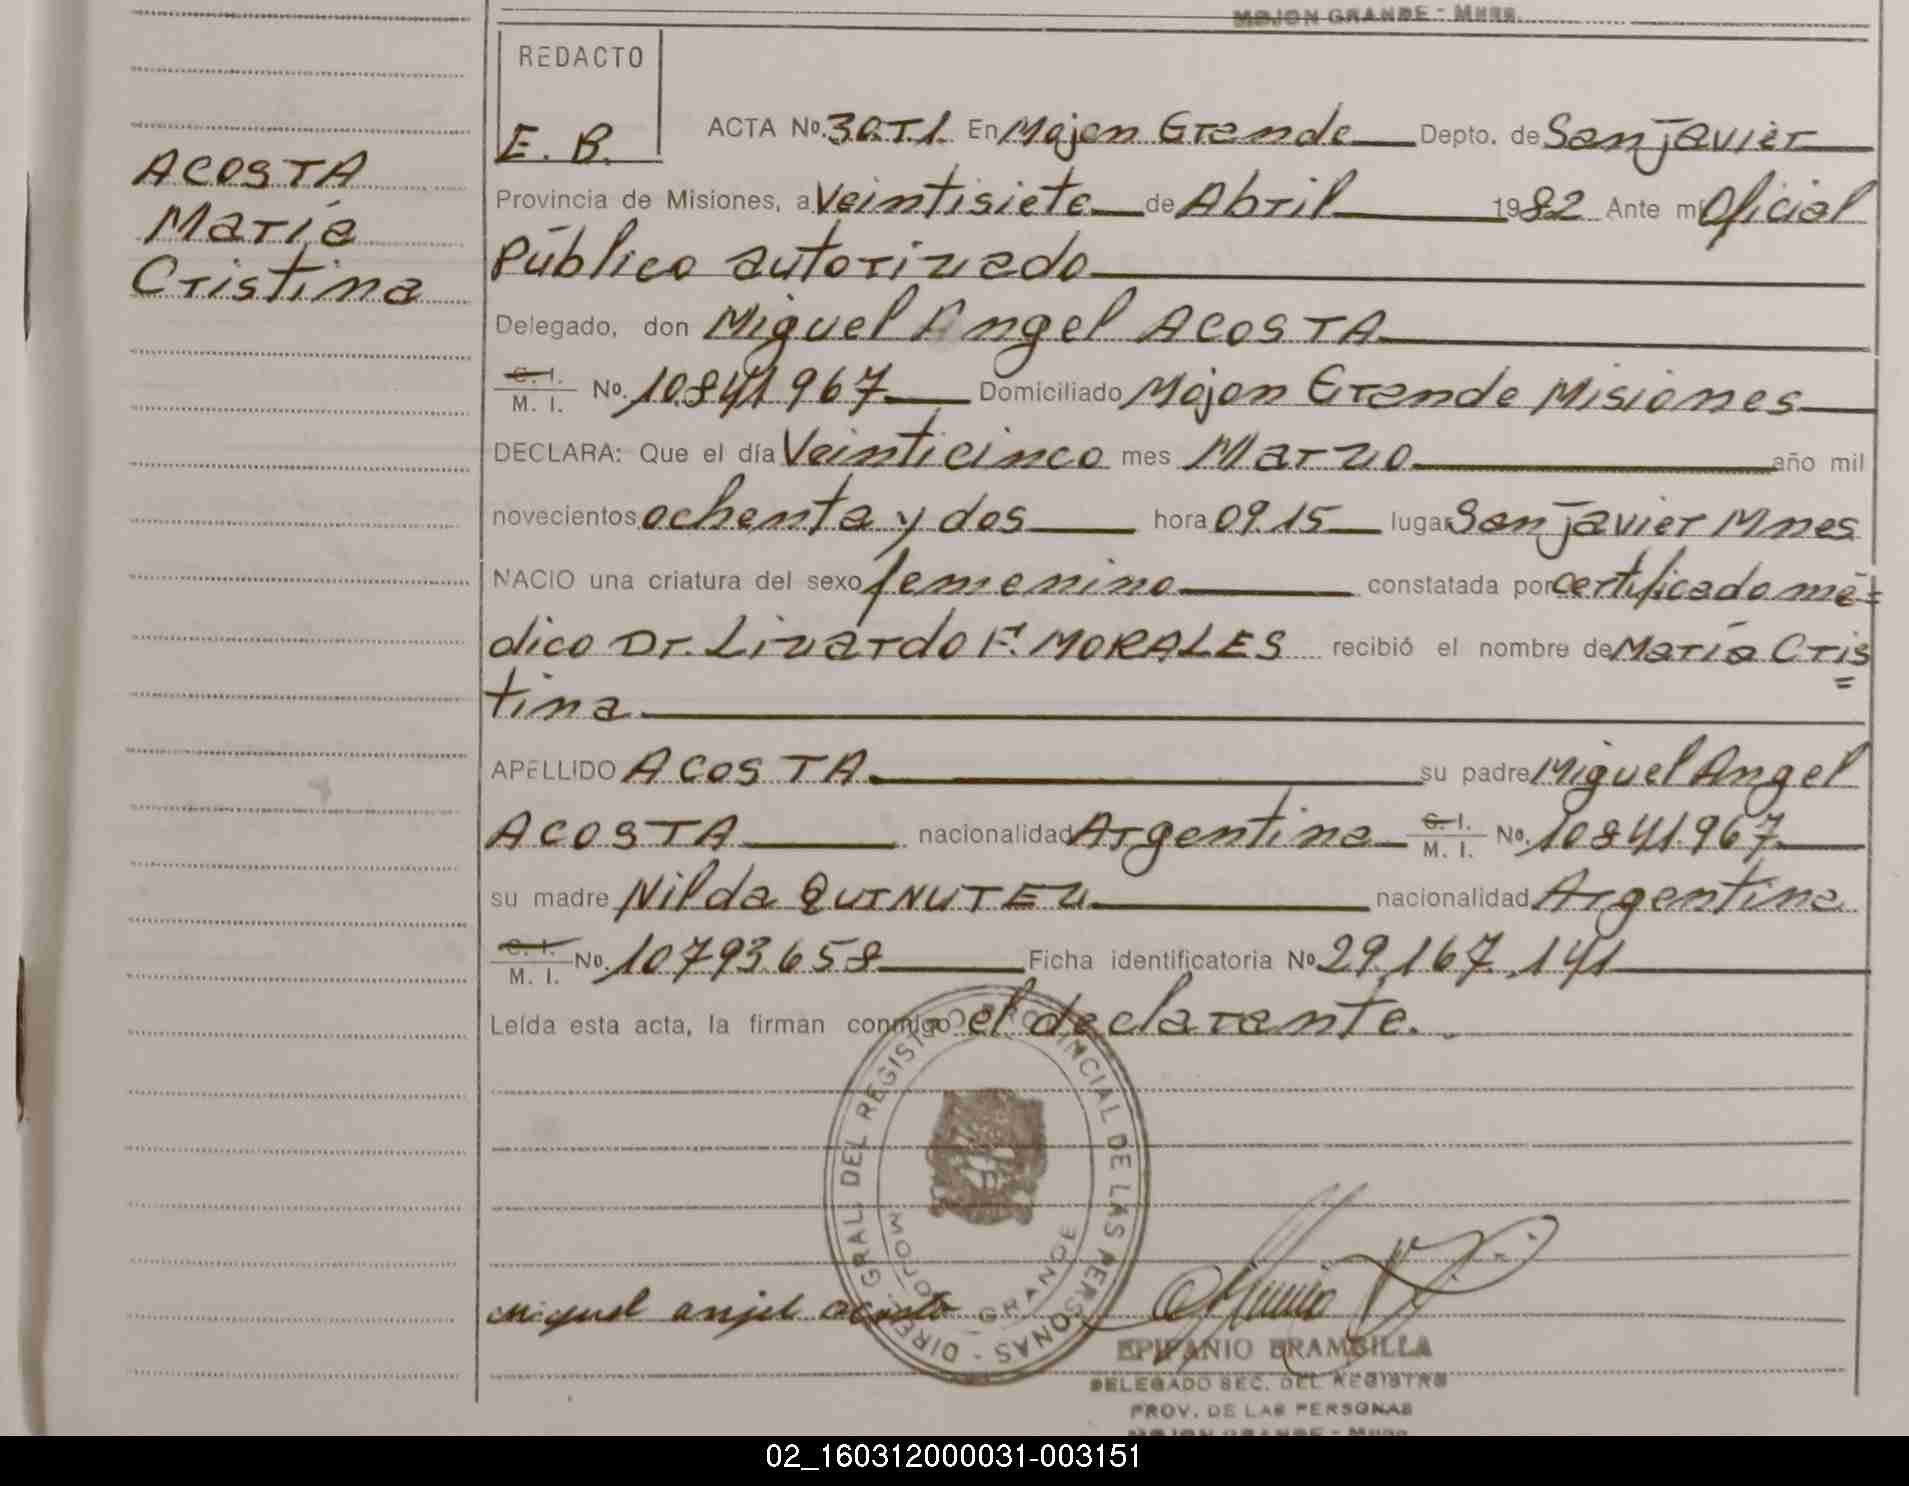 MOJON GRANDE - Mnes.
REDACTO
E. B.
ACOSTA
María
Cristina
ACTA No. 30.T.1. En Mojon Grande Depto. de San Javier
Provincia de Misiones, a Veintisiete de Abril 1982 Ante mí Oficial
Público autorizado
Delegado, don Miguel Angel ACOSTA
C. I.
M. I. No. 10.841.967 Domiciliado Mojon Grande Misiones
DECLARA: Que el día Veinticinco mes Marzo año mil
novecientos ochenta y dos hora 09.15 lugar San Javier Mnes
NACIO una criatura del sexo femenino constatada por certificado mé=
dico Dr. Lizardo F. MORALES recibió el nombre de María Cris
=
tina
APELLIDO ACOSTA su padre Miguel Angel
ACOSTA nacionalidad Argentina C. I.
M. I. No. 10.841.967
su madre Nilda QUINUTEZ nacionalidad Argentina
C. I.
M. I. No. 10.793.658 Ficha identificatoria No 29.167.141
Leída esta acta, la firman conmigo el declarante.
DIREC. GRAL. DEL REGISTRO PROVINCIAL DE LAS PERSONAS -
MOJON GRANDE
miguel anjel acosta
EPIFANIO BRAMBILLA
DELEGADO SEC. DEL REGISTRO
PROV. DE LAS PERSONAS
MOJON GRANDE - Mnes.
02_160312000031-003151